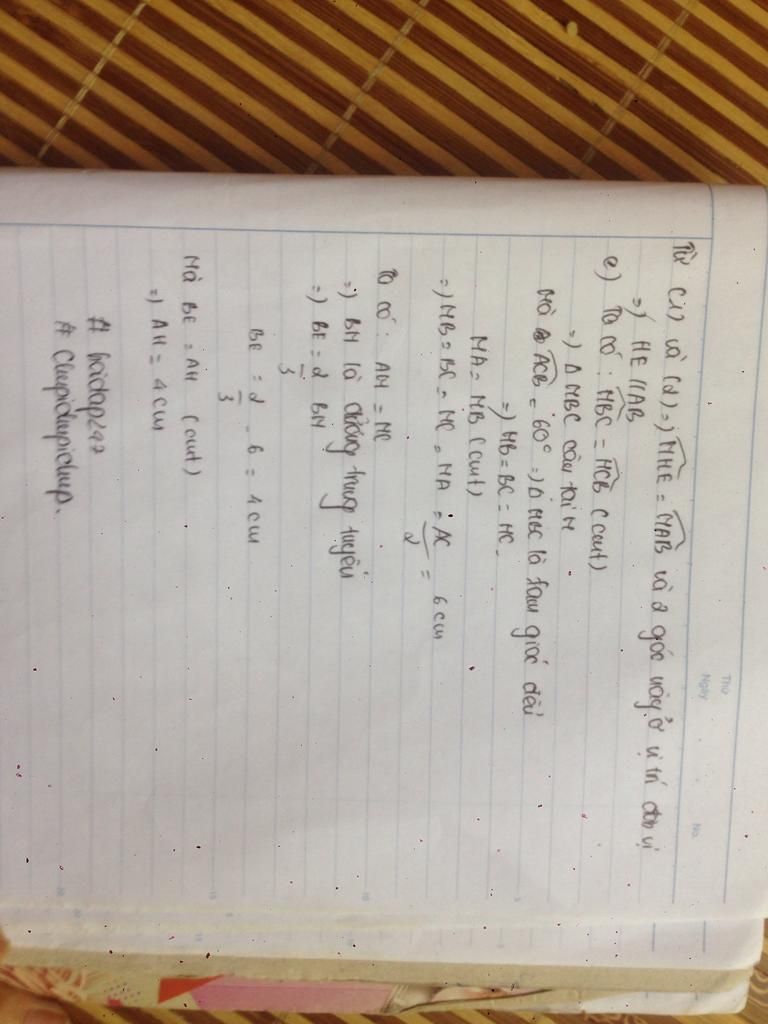 Thứ
Ngày
No.
Từ (1) và (2) =) MHE = MAB và 2 góc này ở vị trí đồng vị
=) HE // AB
e) Ta có : MBC = MCB (cmt)
=) Δ MBC cân tại M
Mà ACB = 60° =) Δ MBC là tam giác đều
=) MB = BC = MC.
MA = MB (cmt)
=) MB = BC = MC = MA = AC/2 = 6 cm
Ta có : AM = MC
=) BM là đường trung tuyến
=) BE = 2/3 BM
BE = 2/3 . 6 = 4 cm
Mà BE = AH (cmt)
=) AH = 4 cm
# hoidap247
# Chupichupichup.